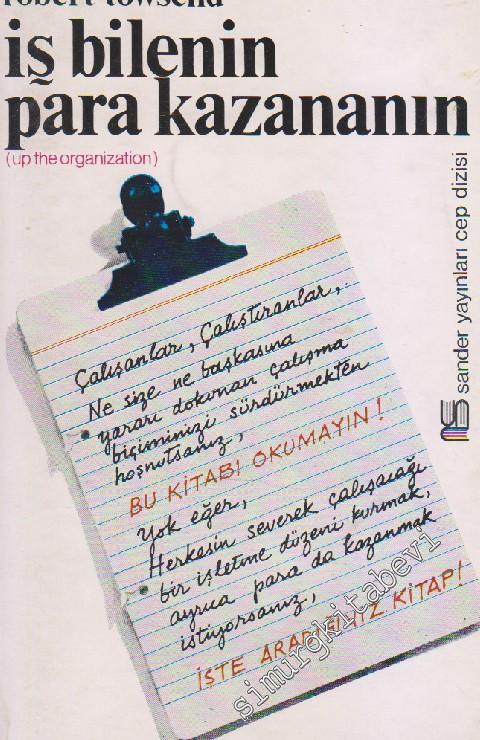 robert towsend
iş bilenin
para kazananın
(up the organization)
sander yayınları cep dizisi
Çalışanlar, Çalıştıranlar,
Ne size ne başkasına
yararı dokunan çalışma
biçiminizi sürdürmekten
hoşnutsanız,
BU KİTABI OKUMAYIN!
Yok eğer,
Herkesin severek çalışacağı
bir işletme düzeni kurmak,
ayrıca para da kazanmak
istiyorsanız,
İŞTE ARADIĞINIZ KİTAP!
simurgkitabevi